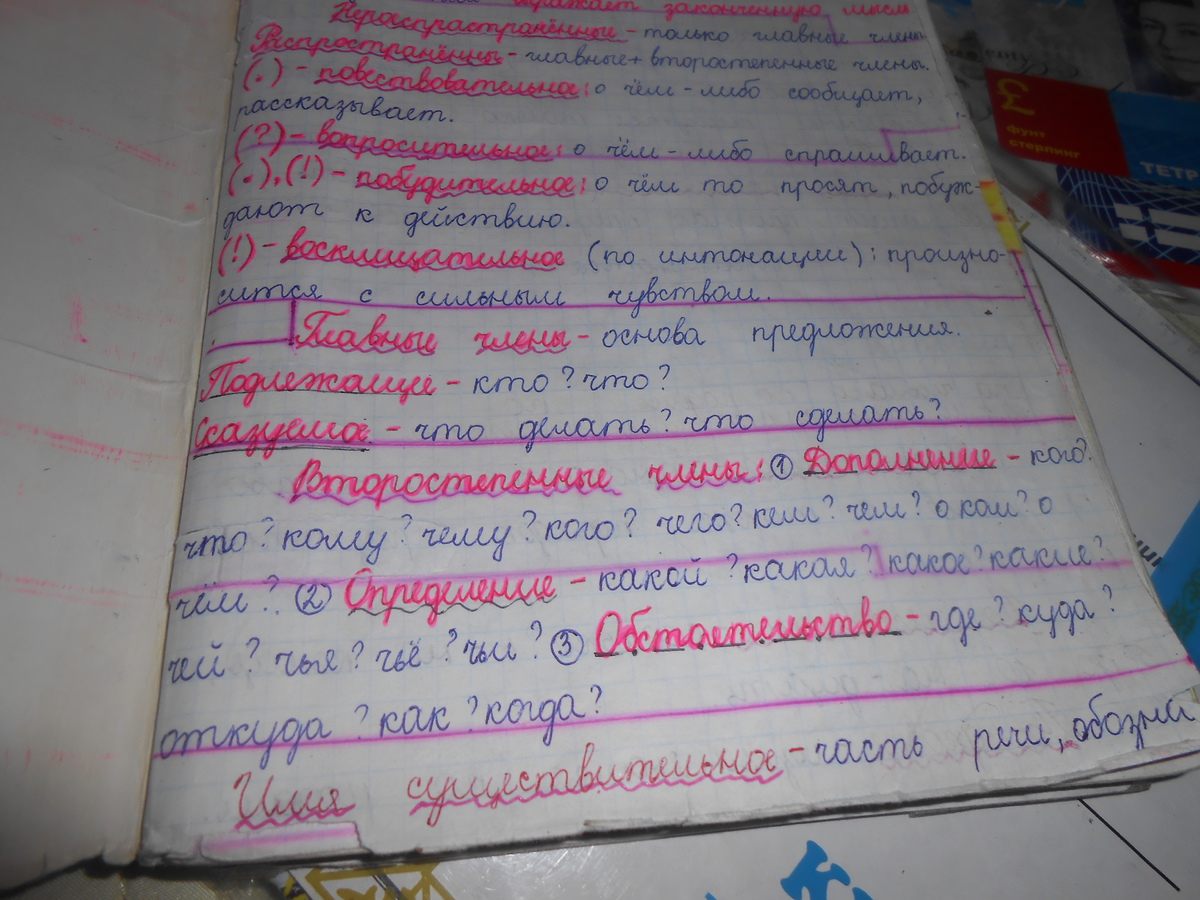 выражает законченную мысль
Нераспространённые - только главные члены
Распространённы - главные + второстепенные члены.
(.) - повествовательное: о чём-либо сообщает,
рассказывает.
(?) - вопросительное: о чём-либо спрашивает.
(.),(!) - побудительное: о чём то просят, побуж-
дают к действию.
(!) - восклицательное (по интонации): произно-
сится с сильным чувством.
Главные члены - основа предложения.
Подлежащее - кто? что?
Сказуемое - что делать? что сделать?
Второстепенные члены: ① Дополнение - кого?
что? кому? чему? кого? чего? кем? чем? о ком? о
чём? ② Определение - какой? какая? какое? какие?
чей? чья? чьё? чьи? ③ Обстоятельство - где? куда?
откуда? как? когда?
Имя существительное - часть речи, обозна
£
фунт
стерлинг
ТЕТР